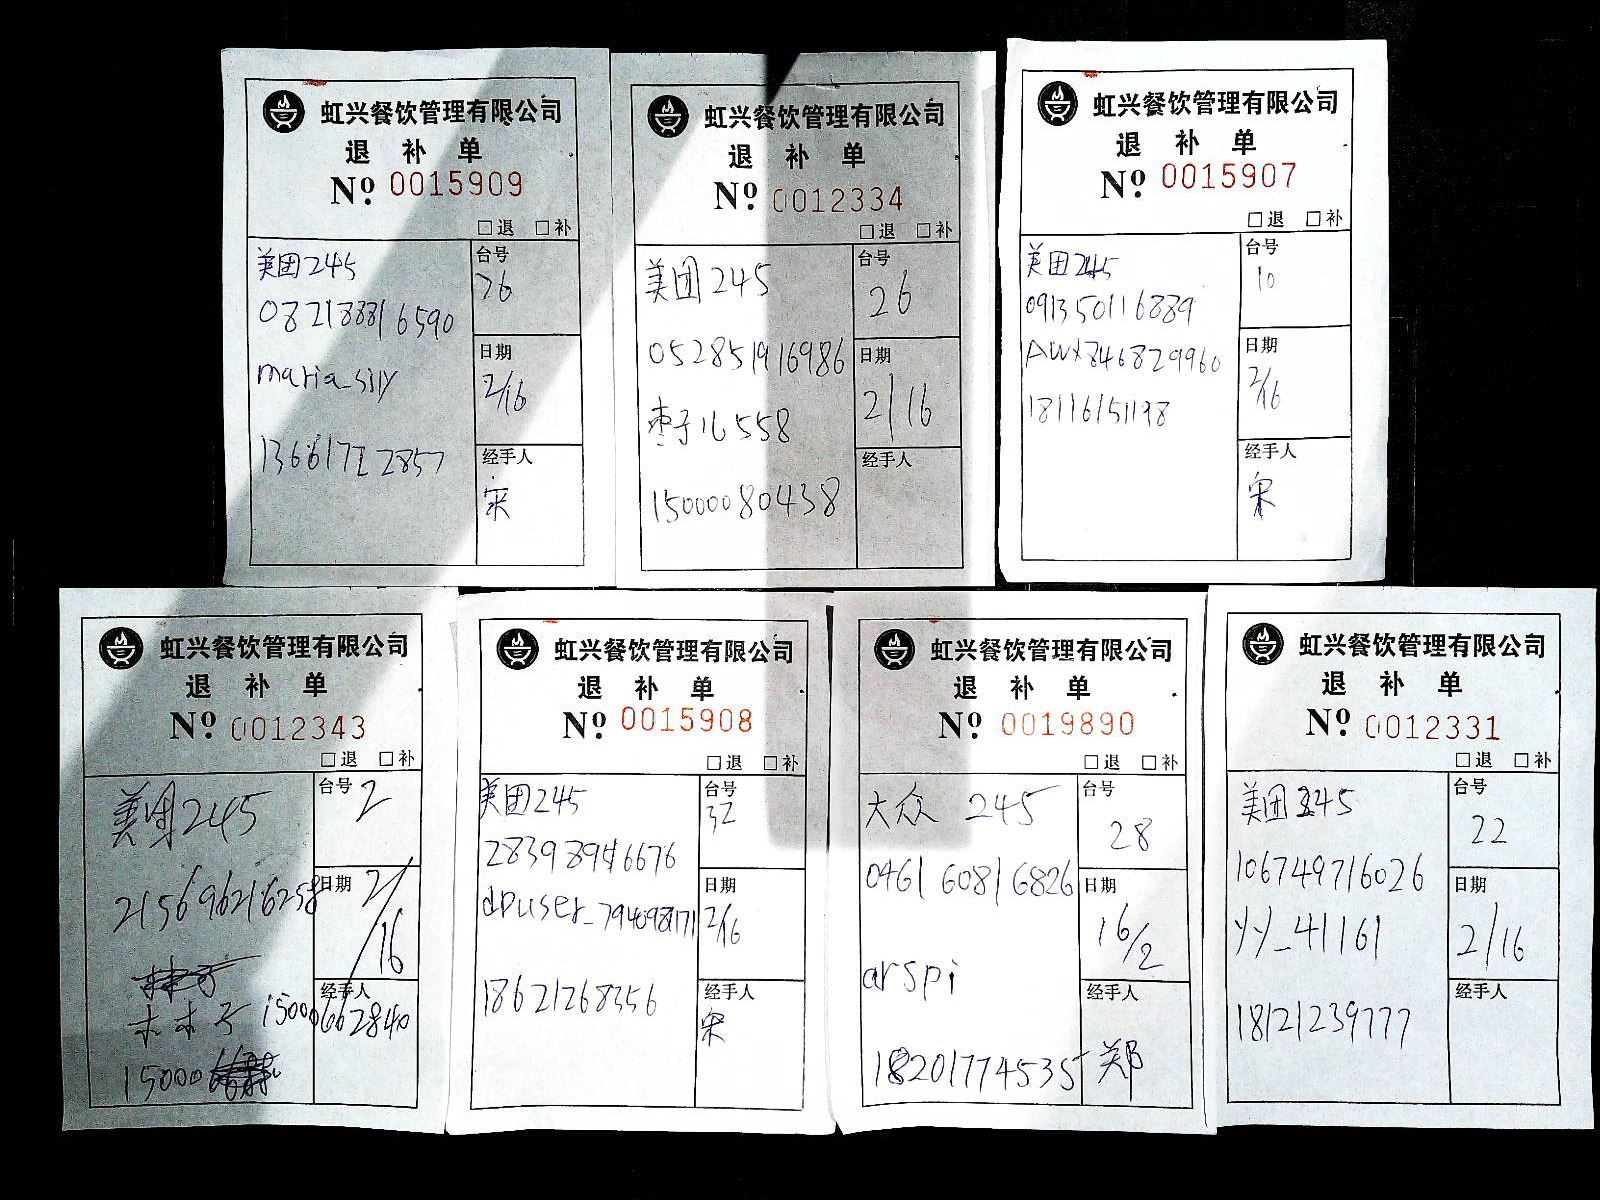 虹兴餐饮管理有限公司
退 补 单
Nº 0015909
□退 □补
美团245
台号
26
082188816590
maria_silly
日期
2/16
13661722857
经手人
宋
虹兴餐饮管理有限公司
退 补 单
Nº 0012334
□退 □补
美团245
台号
26
052851916986
日期
2/16
枣子16558
15000080438
经手人
虹兴餐饮管理有限公司
退 补 单
Nº 0015907
□退 □补
美团245
台号
10
091350116889
AWX846829960
日期
2/16
18116151198
经手人
宋
虹兴餐饮管理有限公司
退 补 单
Nº 0012343
□退 □补
美团245
台号 2
215696216258
日期 2/16
木木子 15000662840
经手人
15000
虹兴餐饮管理有限公司
退 补 单
Nº 0015908
□退 □补
美团245
台号
32
283989416676
dpuser_7940981171
日期
2/16
18621268356
经手人
宋
虹兴餐饮管理有限公司
退 补 单
Nº 0019890
□退 □补
大众 245
台号
28
0461 6081 6826
日期
16/2
arspi
经手人
18201774535
郑
虹兴餐饮管理有限公司
退 补 单
Nº 0012331
□退 □补
美团245
台号
22
106749716026
yy_41161
日期
2/16
18121239777
经手人